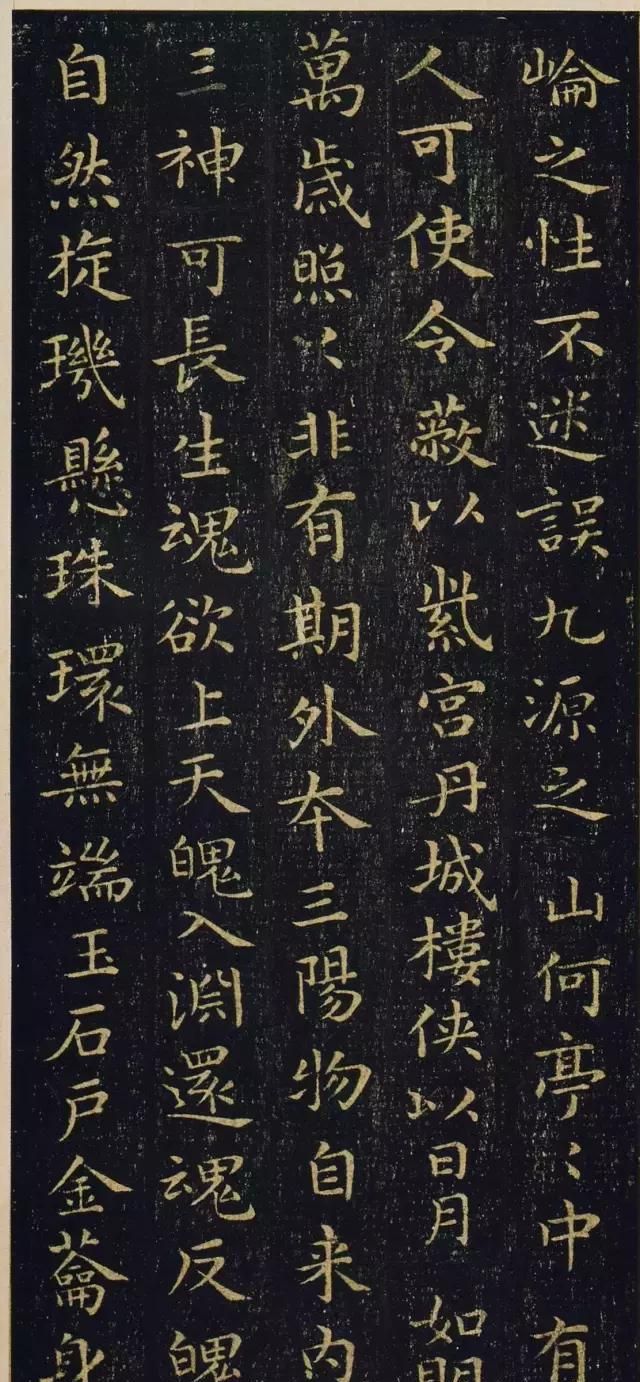 崘之性不迷誤九源之山何亭〻中有
人可使令蔽以紫宮丹城樓侠以日月如
萬歳照〻非有期外夲三陽物自来内
三神可長生魂欲上天魄入淵還魂反魄
自然㫌璣懸珠環無端玉石戶金蘥身